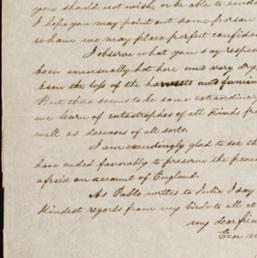 you should not wish, or be able to unde
I hope you may point out some person
whom we may place perfect confide
I observe what you say respe
been unusually hot here and very dry
been the loss of the harvests
But there seems to be some extraordinary
we learn of catastrophes of all kinds fr
well as deceases of all sorts.
I am exceedingly glad to see th
have ended favorably to preserve the peace
afraid on account of England.
As Pablo writes to Julie I say
kindest regards from my birdie to all at
my dear frie
Ever